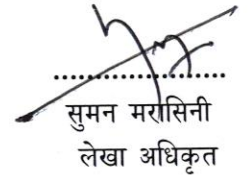 सुमन मरासिनी
लेखा अधिकृत